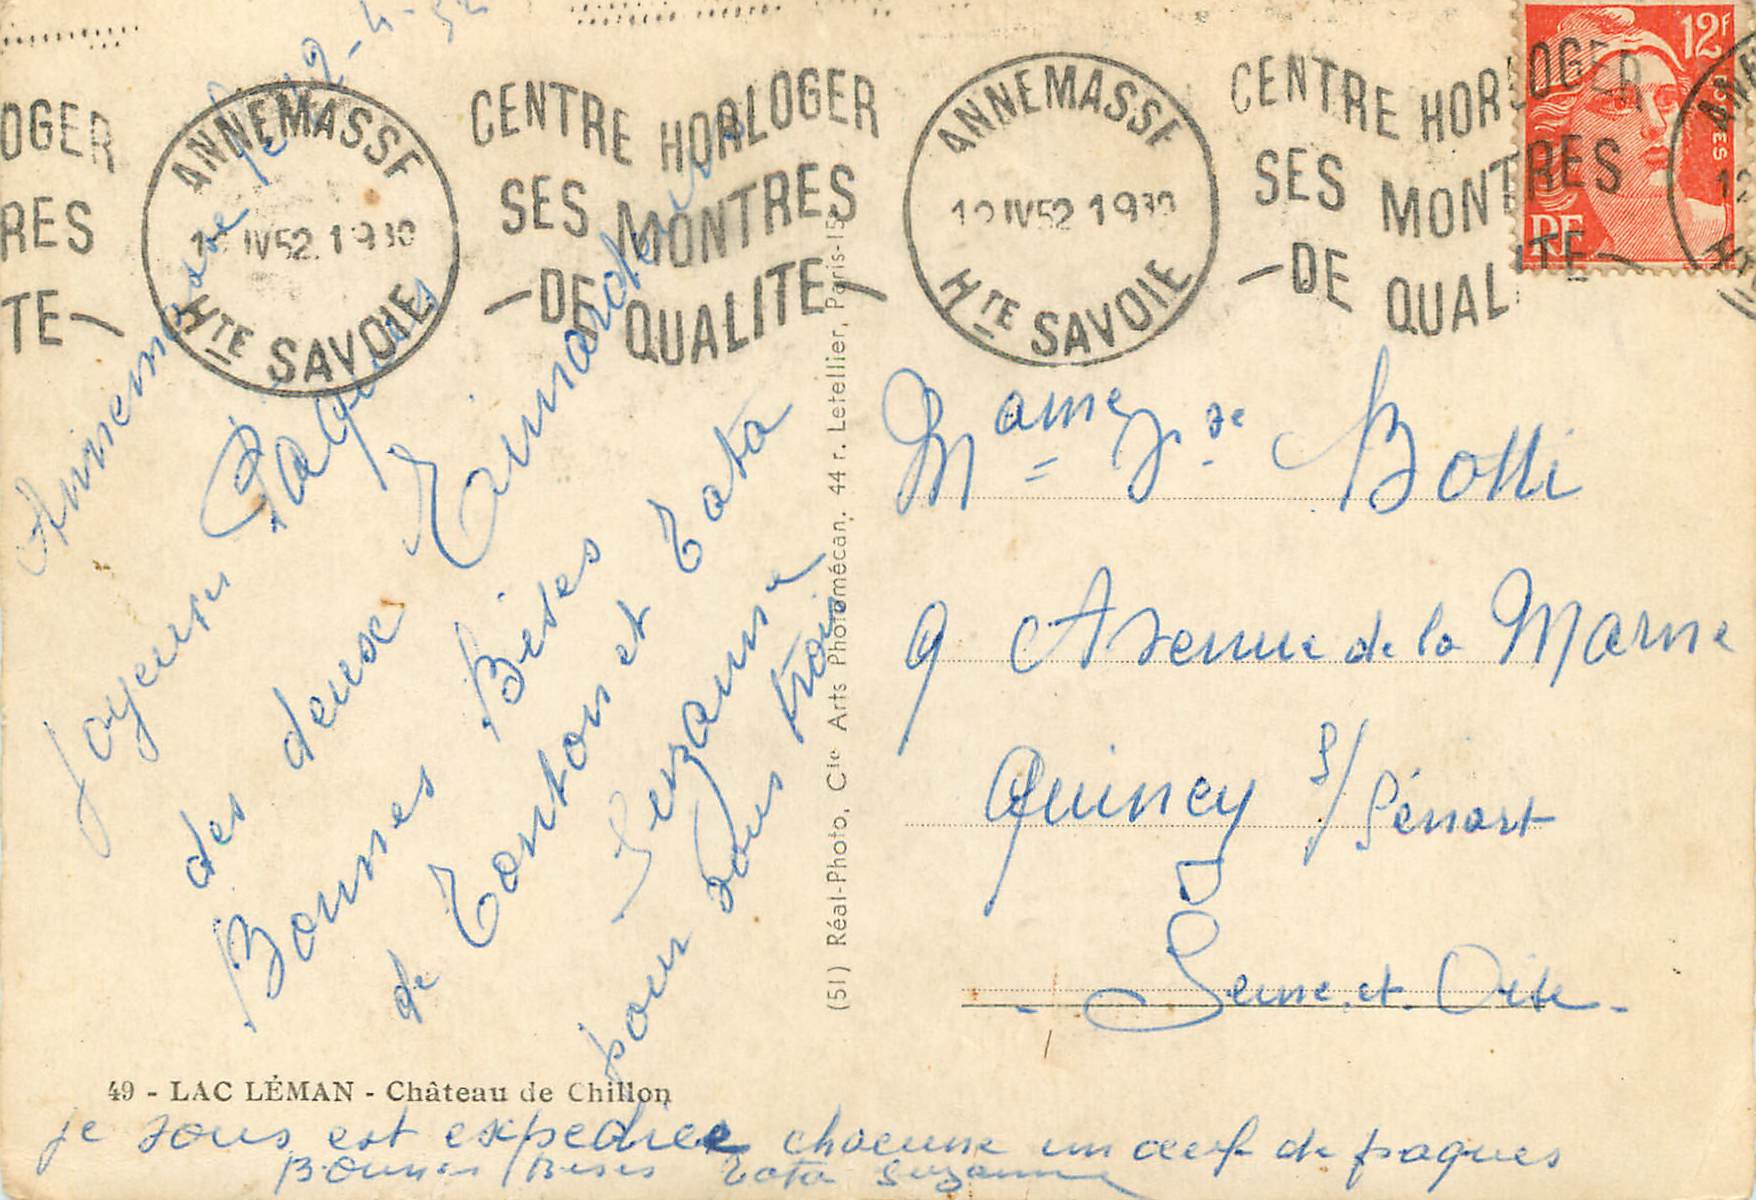 OGER
RES
TE-
ANNEMASSE
IV52 1930
HTE SAVOIE
CENTRE HORLOGER
SES MONTRES
-DE QUALITE-
ANNEMASSE
12 IV52 1930
HTE SAVOIE
CENTRE HORLOGER
SES MONTRES
-DE QUALITE-
12F
POSTES
RF
Annemasse le 12-4-52
Joyeuses Paques
des deux
Bonnes Bises
de Tonton et Tata
Suzanne
pour vous trois
je vous est expediee chacune un œuf de paques
Bonnes Bises Tata Suzanne
49 - LAC LÉMAN - Château de Chillon
(51) Réal-Photo, Cie Arts Photomécan. 44 r. Letellier, Paris-15e
Botti
9 Avenue de la Marne
Quincy s/ Sénart
Seine et Oise